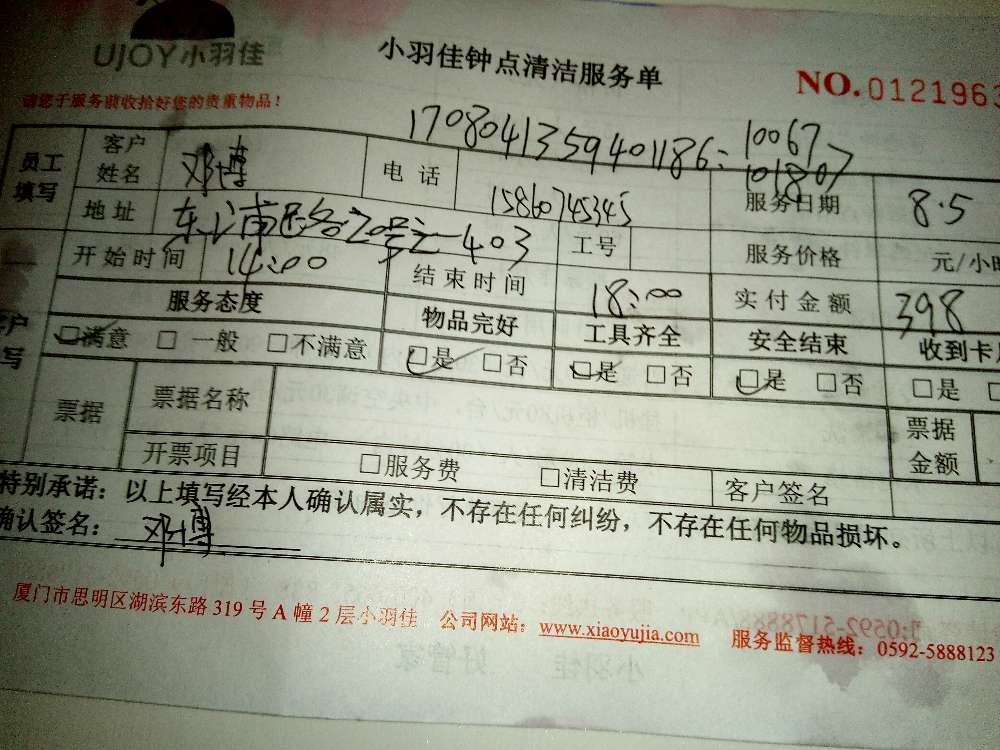 UJOY小羽佳
小羽佳钟点清洁服务单
NO.0121963
请您于服务前收拾好您的贵重物品！
1708041359401186:10067
101807
员工填写 客户姓名 邓博 电话 15860745345 服务日期 8.5
地址 东浦路20号之一403 工号 服务价格 元/小时
开始时间 14:00 结束时间 18:00 实付金额 398
服务态度 物品完好 工具齐全 安全结束 收到卡
☑满意 □一般 □不满意 ☑是 □否 ☑是 □否 ☑是 □否 □是 □
票据 票据名称 票据金额
开票项目 □服务费 □清洁费 客户签名
特别承诺：以上填写经本人确认属实，不存在任何纠纷，不存在任何物品损坏。
确认签名：邓博
厦门市思明区湖滨东路319号A幢2层小羽佳 公司网站：www.xiaoyujia.com 服务监督热线：0592-5888123